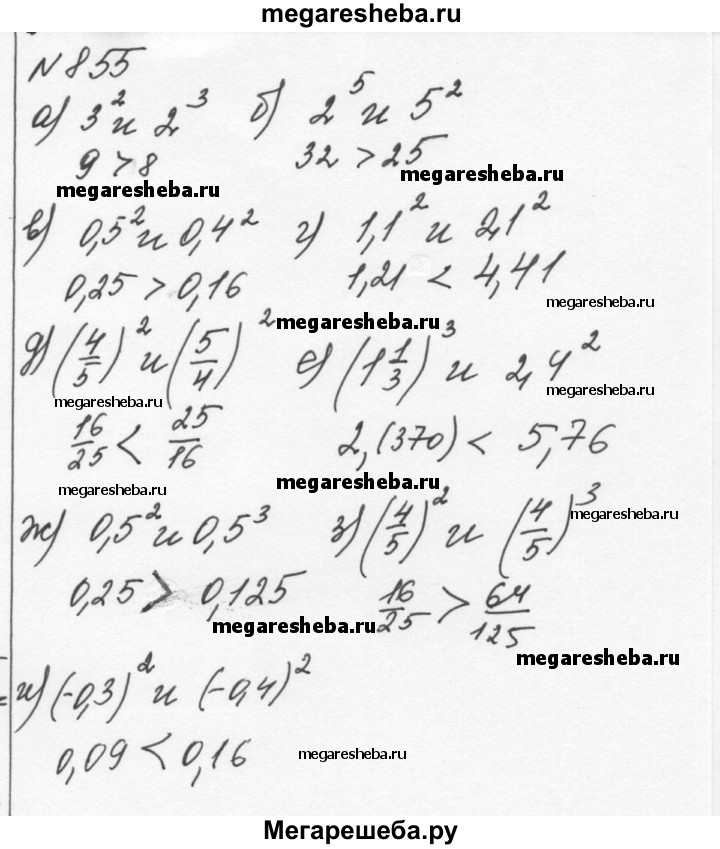 megaresheba.ru
N 855
а) 3² и 2³ б) 2⁵ и 5²
9 > 8 32 > 25
megaresheba.ru megaresheba.ru
в) 0,5² и 0,4² г) 1,1² и 2,1²
0,25 > 0,16 1,21 < 4,41
megaresheba.ru
megaresheba.ru
д) (4/5)² и (5/4)² е) (1 1/3)³ и 2,4²
megaresheba.ru megaresheba.ru
16/25 < 25/16 2,(370) < 5,76
megaresheba.ru megaresheba.ru
ж) 0,5² и 0,5³ з) (4/5)² и (4/5)³
megaresheba.ru
0,25 > 0,125 16/25 > 64/125
megaresheba.ru
megaresheba.ru
и) (-0,3)² и (-0,4)²
0,09 < 0,16
megaresheba.ru
Мегарешеба.ру